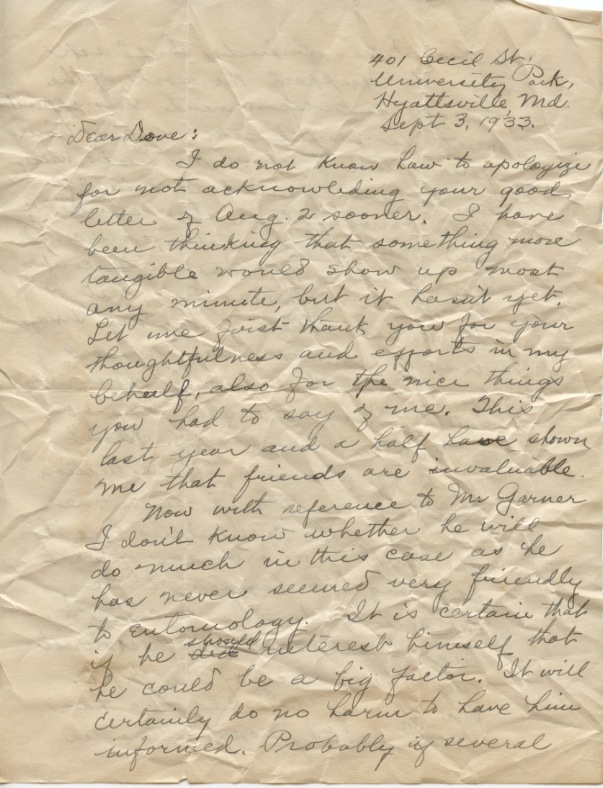 401 Cecil St.
University Park,
Hyattsville, Md.
Sept 3, 1933.
Dear Dove:
I do not know how to apologize
for not acknowleding your good
letter of Aug. 2 sooner. I have
been thinking that something more
tangible would show up most
any minute, but it hasn't yet.
Let me first thank you for your
thoughtfulness and efforts in my
behalf, also for the nice things
you had to say of me. This
last year and a half have shown
me that friends are invaluable.
Now with reference to Mr Garner
I don't know whether he will
do much in this case as he
has never seemed very friendly
to entomology. It is certain that
if he should interest himself that
he could be a big factor. It will
certainly do no harm to have him
informed. Probably if several